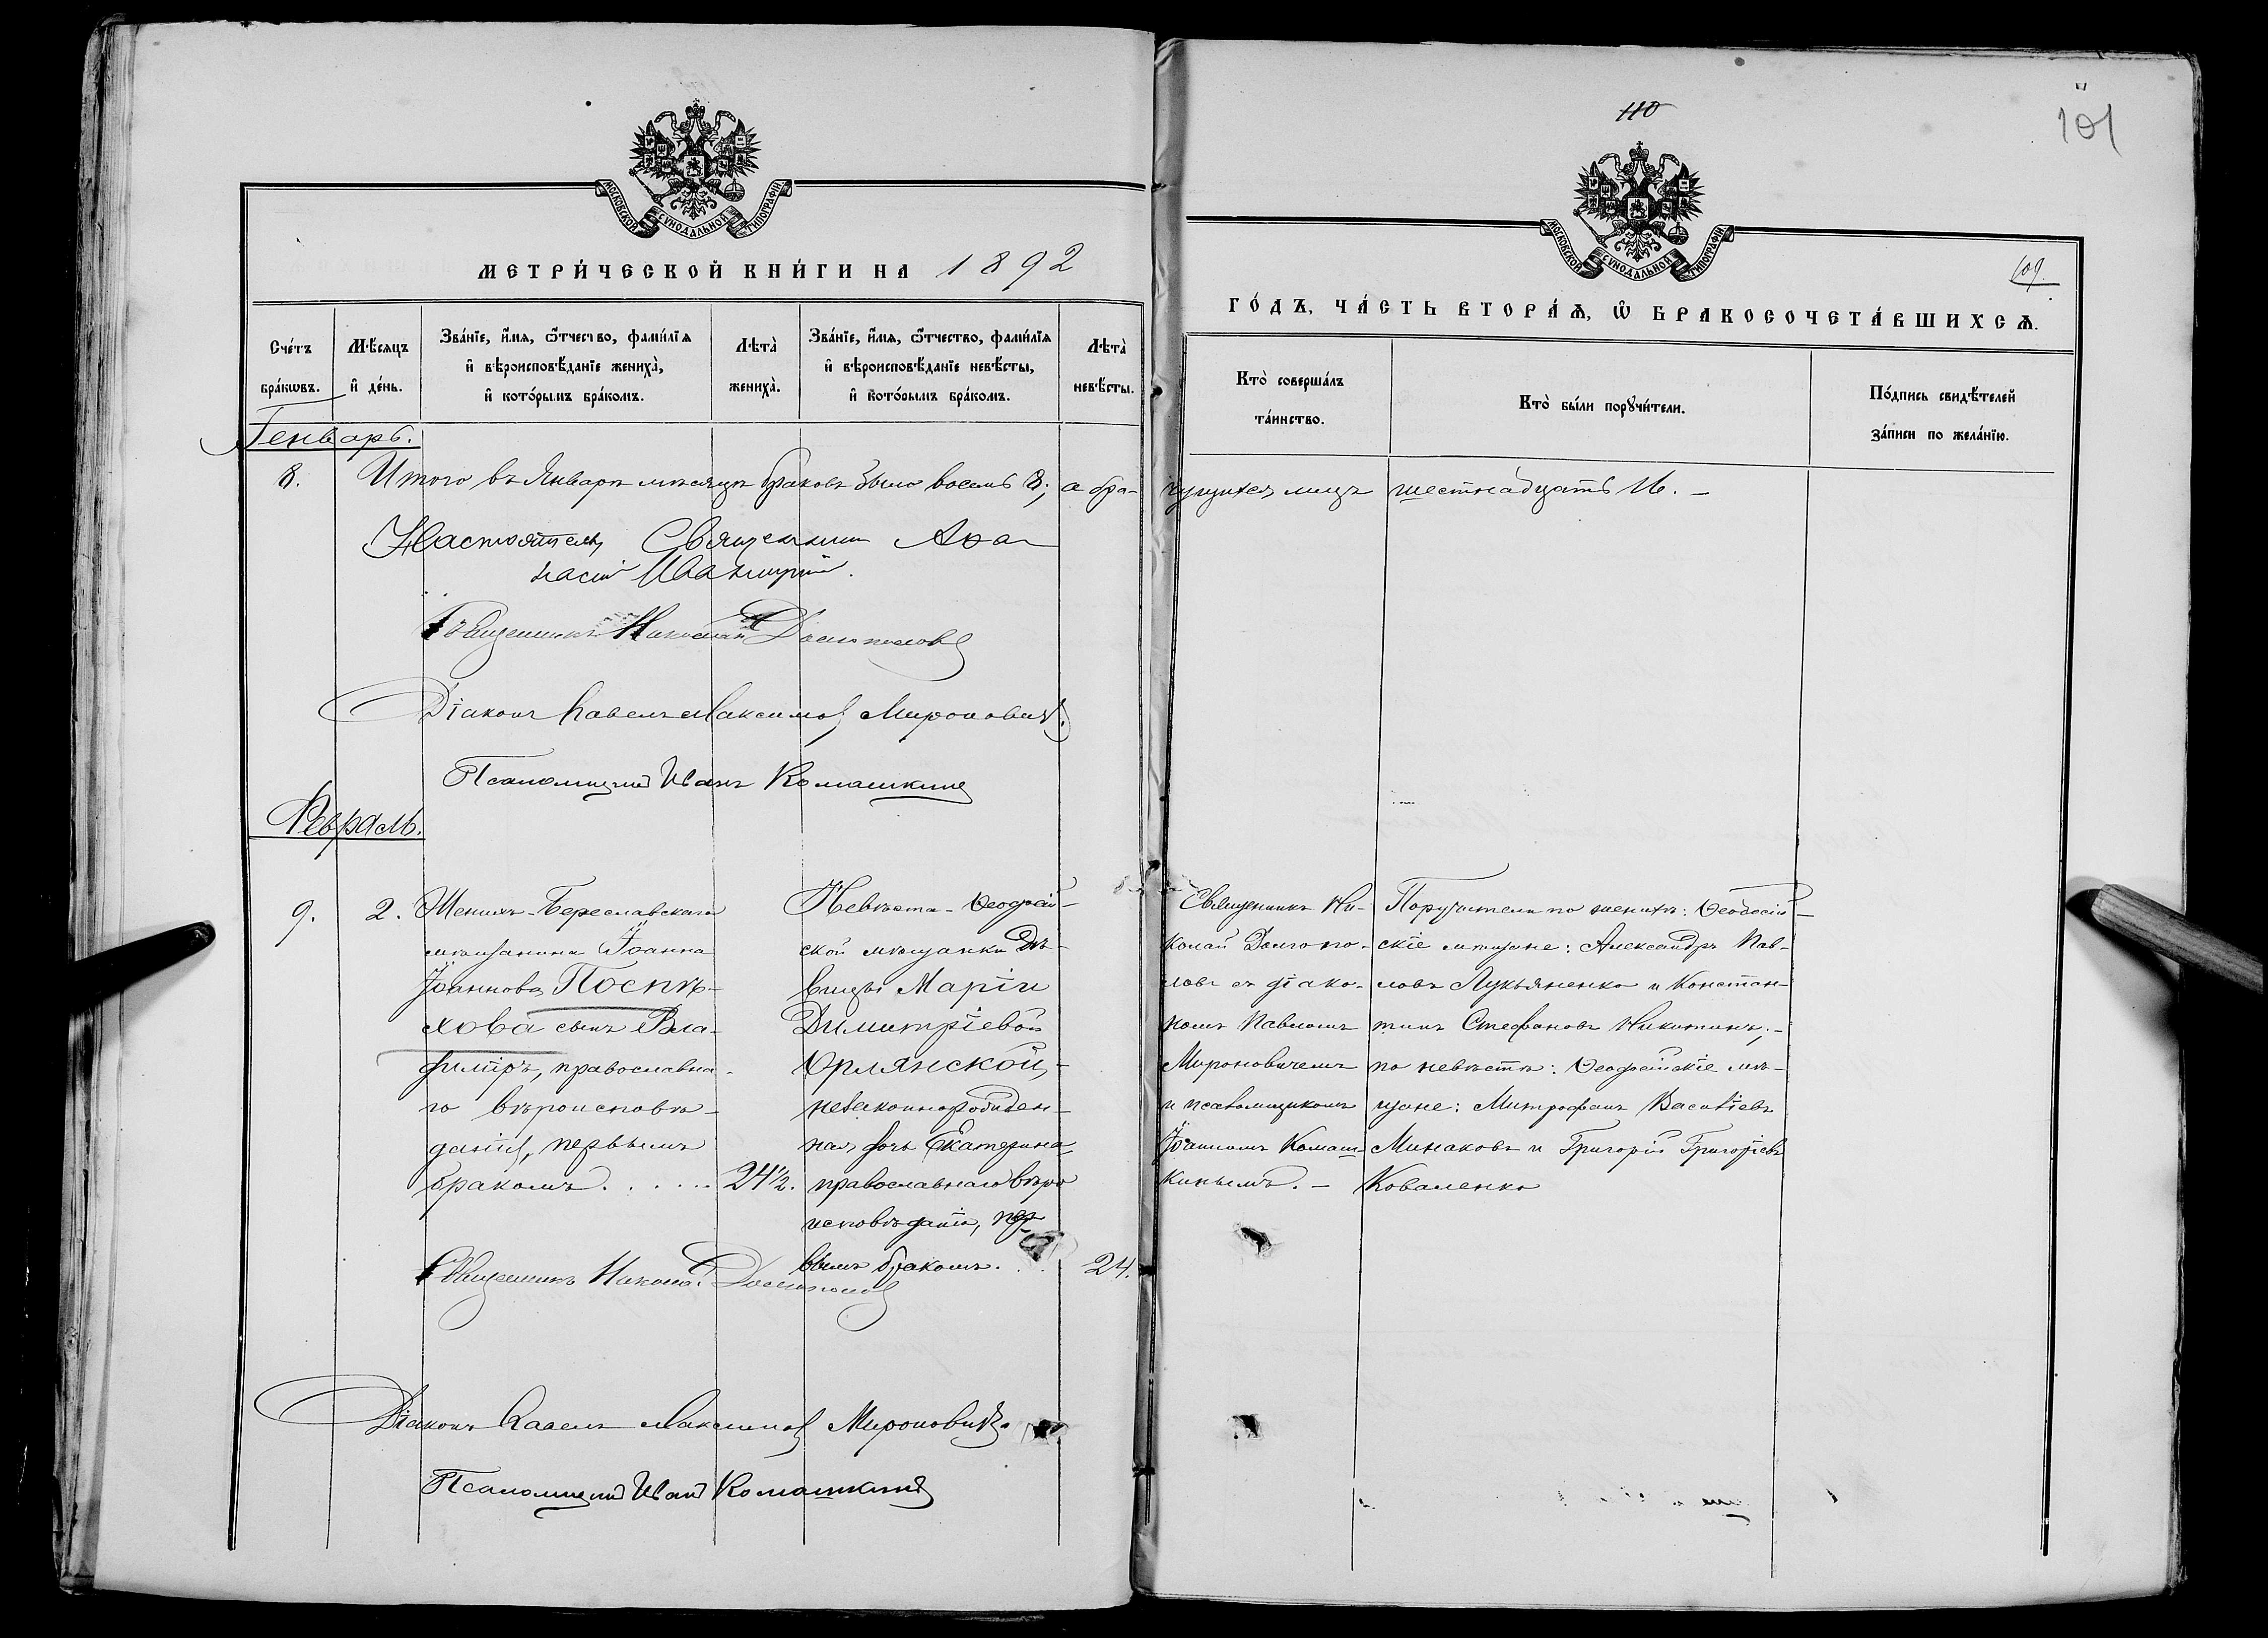 МОСКОВСКОЙ СУНОДАЛЬНОЙ ТИПОГРАФІИ
МЕТРИ́ЧЕСКОЙ КНИ́ГИ НА 1892
Сче́тъ бра́кѡвъ.
Мѣ́сяцъ и҆ де́нь.
Зва́нїе, и҆́мя, ѻ҆́тчество, фами́лїя и҆ вѣроисповѣ́данїе жениха̀, и҆ кото́рымъ бра́комъ.
Лѣта̀ жениха̀.
Зва́нїе, и҆́мя, ѻ҆́тчество, фами́лїя и҆ вѣроисповѣ́данїе невѣ́сты, и҆ кото́рымъ бра́комъ.
Лѣта̀ невѣ́сты.
Генварь.
8. Итого въ Январѣ мѣсяцѣ браковъ было восемь 8; а бра-
Настоятель Священникъ Аѳа-
насій Иваницкій.
Священникъ Николай Долгополовъ
Діаконъ Павелъ Максимов Мироновичъ.
Псаломщикъ Иванъ Комашкинъ
Февраль.
9. 2. Женихъ - Береславскаго
мѣщанина Іоанна
Іоаннова Поспѣ-
хова сынъ Вла-
димїръ, православна-
го вѣроисповѣ-
данія, первымъ
бракомъ. . . . . . 24½.
Невѣста - Ѳеодосій-
ской мѣщанки Дѣ-
вицы Маріи
Димитріевой
Орлянской,
незаконнорожден-
ная дочь Екатерина
православнаго вѣро
исповѣданія, пер-
вымъ бракомъ. . . 24.
Священникъ Николай Долгополовъ
Діаконъ Павелъ Максимов Мироновичъ.
Псаломщикъ Иванъ Комашкинъ
110
101
МОСКОВСКОЙ СУНОДАЛЬНОЙ ТИПОГРАФІИ
109.
ГО́ДЪ, ЧА́СТЬ ВТОРА́Ѧ, Ѡ҆ БРАКОСОЧЕТА́ВШИХСѦ.
Кто̀ соверша́лъ та́инство.
Кто̀ бы́ли порꙋчи́тели.
По́дпись свидѣ́телей за́писи по жела́нїю.
чущихся лицъ шестнадцать 16. -
Священникъ Ни-
колай Долгопо-
ловъ съ діако-
номъ Павломъ
Мироновичемъ
и псаломщикомъ
Іоанномъ Комаш-
кинымъ. -
Поручители по женихѣ: Ѳеодосій-
скіе мѣщане: Александръ Пав-
ловъ Лукьяненко и Констан-
тинъ Стефановъ Никитинъ; -
по невѣстѣ: Ѳеодосійскіе мѣ-
щане: Митрофанъ Васильевъ
Минаковъ и Григорій Григорьевъ
Коваленко